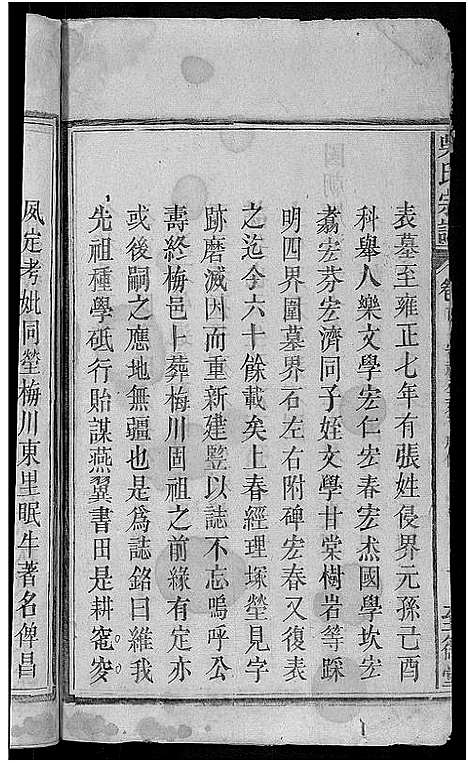 吳氏宗譜
表墓至雍正七年有張姓侵界元孫己酉
科舉人樂文學宏仁宏春宏杰國學坎宏
翥宏芬宏濟同子姪文學甘棠樹岩等踩
明四界圍墓界石左右附碑宏春又復表
之迄今六十餘載矣上春經理塚塋見字
跡磨滅因而重新建豎以誌不忘嗚呼公
壽終梅邑卜葬梅川固祖之前緣有定亦
或後嗣之應地無疆也是爲誌銘曰維我
先祖種學砥行貽謀燕翼書田是耕窀穸
夙定考妣同塋梅川東里眠牛著名俾昌